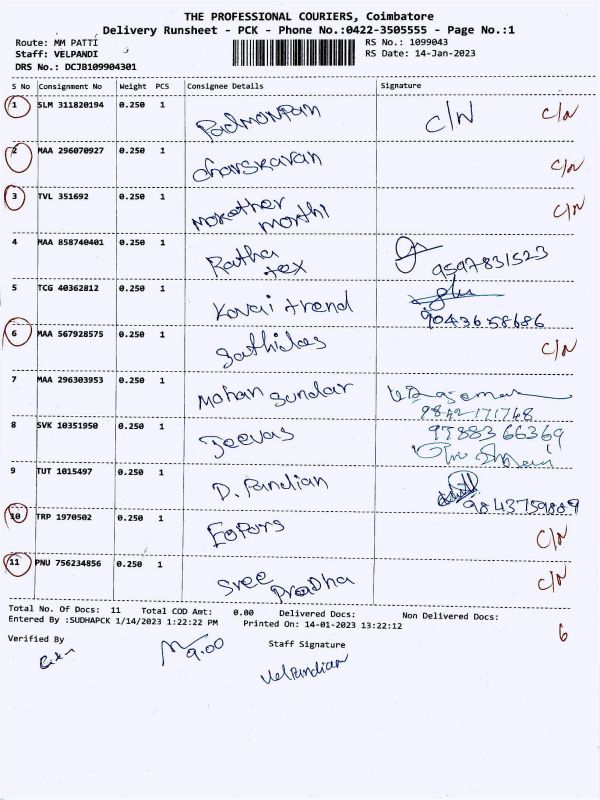 THE PROFESSIONAL COURIERS, Coimbatore
Delivery Runsheet - PCK - Phone No.:0422-3505555 - Page No.:1
Route: MM PATTI RS No.: 1099043
Staff: VELPANDI RS Date: 14-Jan-2023
DRS No.: DCJB109904301
S No Consignment No Weight PCS Consignee Details Signature
1 SLM 311820194 0.250 1 C/N C/N
2 MAA 296070927 0.250 1 C/N
3 TVL 351692 0.250 1 C/N
morthi
4 MAA 858740401 0.250 1 Ratha
tex 9597831523
5 TCG 40362812 0.250 1 Kovai trend
9043658686
6 MAA 567928575 0.250 1 C/N
7 MAA 296303953 0.250 1 Mohan Sundar
9842171768
8 SVK 10351950 0.250 1 Jeevas 9788366369
9 TUT 1015497 0.250 1 D. Pandian
9843759889
10 TRP 1970502 0.250 1 C/N
11 PNU 756234856 0.250 1 Sree C/N
Total No. Of Docs: 11 Total COD Amt: 0.00 Delivered Docs: Non Delivered Docs:
Entered By :SUDHAPCK 1/14/2023 1:22:22 PM Printed On: 14-01-2023 13:22:12 6
Verified By 9.00 Staff Signature
Velpandian